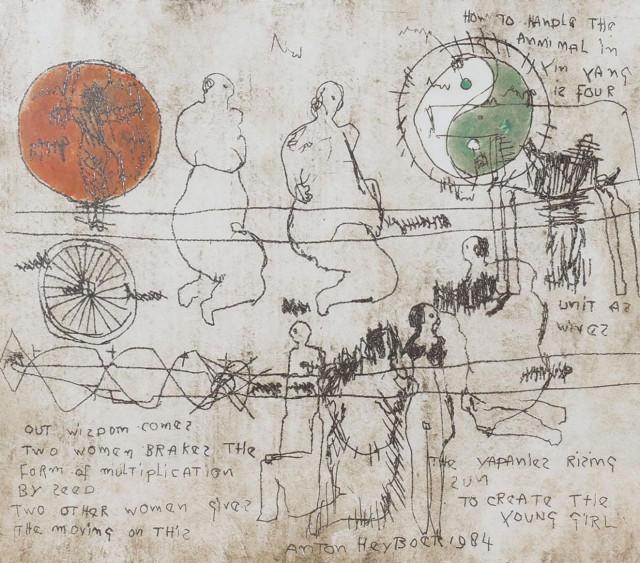 HOW TO HANDLE THE
ANMIMAL In
YIN YANG
IS FOUR
UNIT AS
WIVES
OUT WISDOM COMES
TWO WOMEN BRAKES THE
FORM of MULTIPLICATION
BY SEED
TWO OTHER WOMEN GIVES
THE MOVING ON THIS
THE YAPANIES RISING
SUN
TO CREATE THE
YOUNG GIRL
ANTON HEYBOER 1984